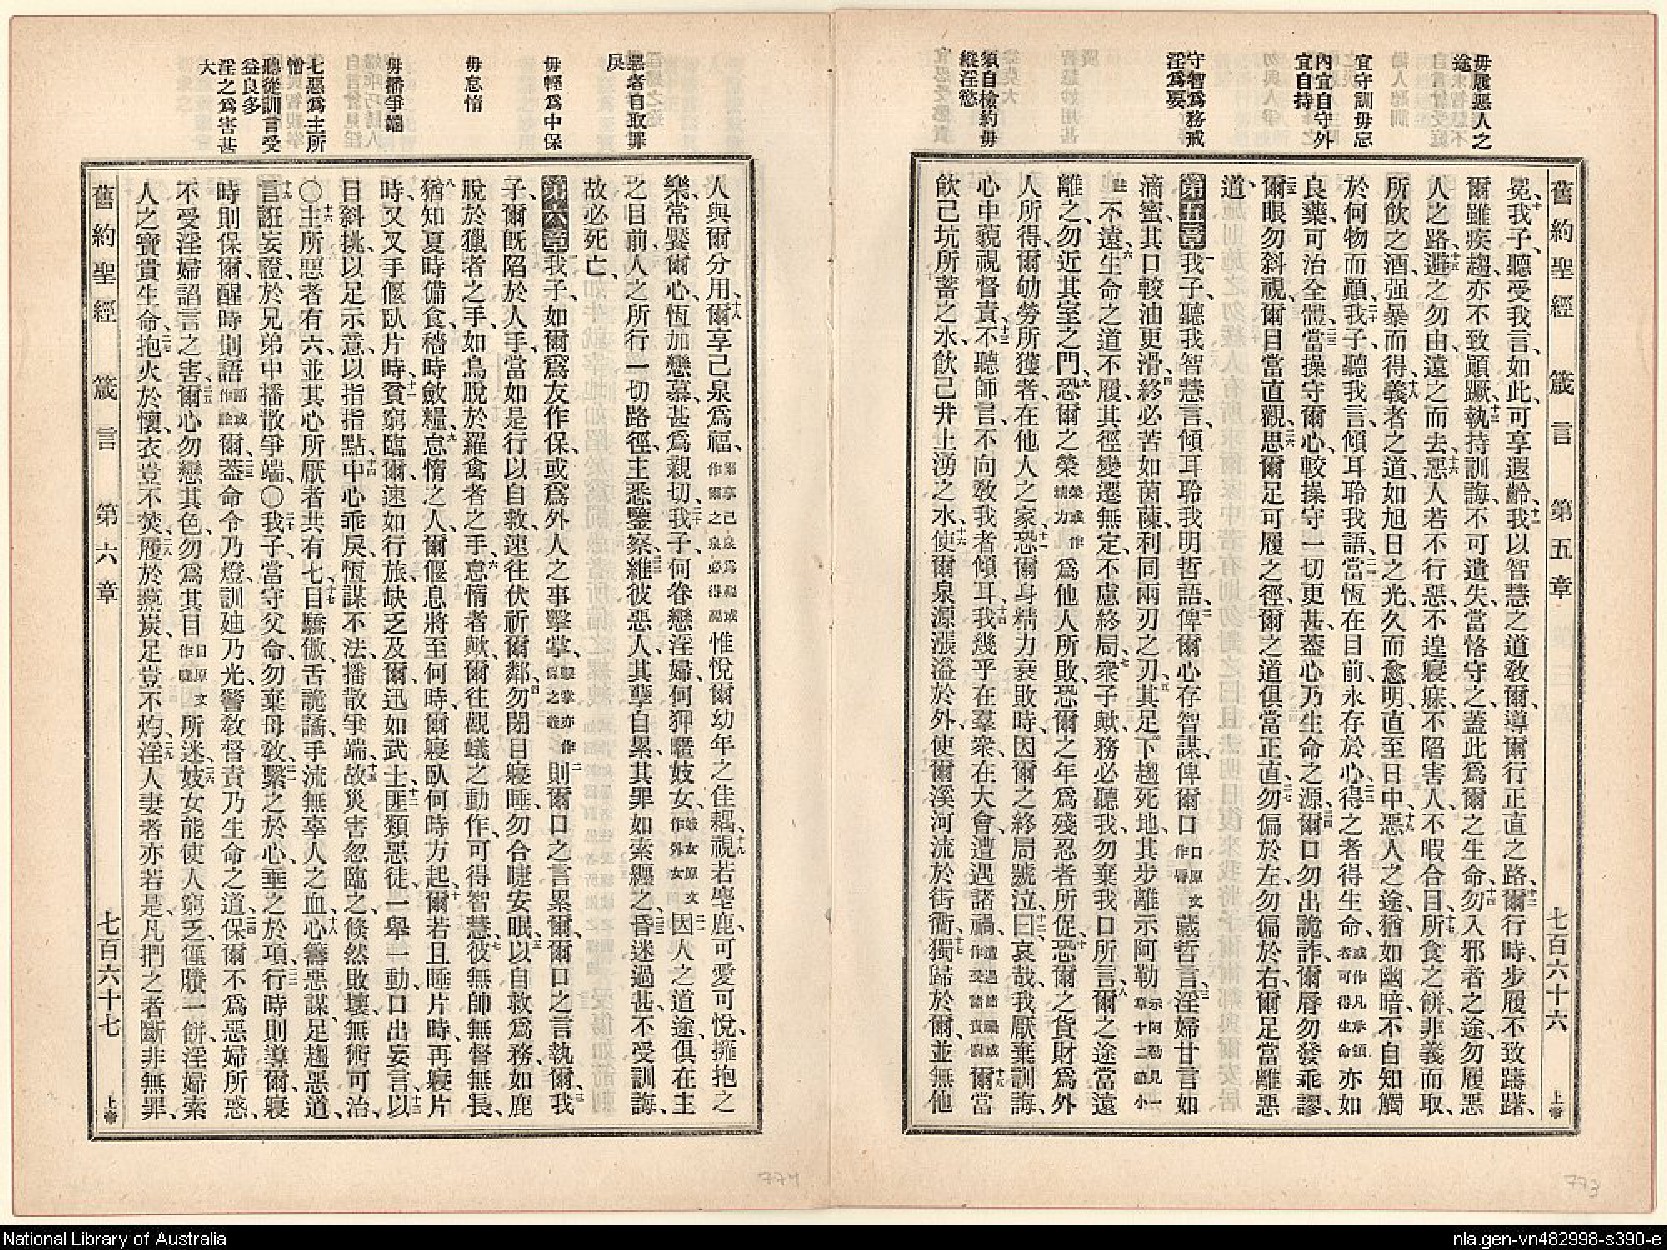 毋履惡人之
途
宜守訓毋忘
內宜自守外
宜自持
守智爲務戒
淫爲要
須自檢約毋
縱淫慾
舊約聖經 箴言 第五章 七百六十六 上帝
冕、十我子、聽受我言、如此、可享遐齡、十一我以智慧之道敎爾、導爾行正直之路、十二爾行時、步履不致躊躇、
爾雖疾趨、亦不致顚蹶、十三執持訓誨、不可遺失、當恪守之、蓋此爲爾之生命、十四勿入邪者之途、勿履惡
人之路、十五避之勿由、遠之而去、十六惡人若不行惡、不遑寢寐、不陷害人、不暇合目、十七所食之餅、非義而取、
所飮之酒、强暴而得、十八義者之道、如旭日之光、久而愈明、直至日中、十九惡人之途、猶如幽暗、不自知觸
於何物而顚、二十我子聽我言、傾耳聆我語、二一當恆在目前、永存於心、二二得之者得生命、或作凡享須者可得生命亦如
良藥、可治全體、二三當操守爾心、較操守一切更甚、蓋心乃生命之源、二四爾口勿出詭詐、爾唇勿發乖謬、
二五爾眼勿斜視、爾目當直觀、二六思爾足可履之徑、爾之道俱當正直、二七勿偏於左、勿偏於右、爾足當離惡
道、
第五章 一我子、聽我智慧言、傾耳聆我明哲語、二俾爾心存智謀、俾爾口口原文作唇藏哲言、三淫婦甘言如
滴蜜、其口較油更滑、四終必苦如茵蔯、利同兩刃之刃、五其足下趨死地、其步離示阿勒示阿勒見一章十二節小
註、六不遠生命之道、不履其徑、變遷無定、不慮終局、七衆子歟、務必聽我、勿棄我口所言、八爾之途當遠
離之、勿近其室之門、九恐爾之榮榮或作精力爲他人所敗、恐爾之年爲殘忍者所促、十恐爾之貨財爲外
人所得、爾劬勞所獲者、在他人之家、十一恐爾身精力衰敗時、因爾之終局號泣、十二曰、哀哉、我厭棄訓誨、
心中藐視督責、十三不聽師言、不向敎我者傾耳、十四我幾乎在羣衆、在大會、遭遇諸禍、遭遇諸禍或作受諸責罰十五爾當
飮己坑所蓄之水、飮己井上湧之水、十六使爾泉源漲溢於外、使爾溪河流於街衢、十七獨歸於爾、並無他
惡者自取罪
戾
毋輕爲中保
毋怠惰
毋播爭端
七惡爲主所
憎
聽從訓言受
益良多
淫之爲害甚
大
人與爾分用、十八爾享己泉爲福、爾享己泉爲福或作爾之泉必得福惟悅爾幼年之佳耦、十九視若麀鹿、可愛可悅、擁抱之
樂、常饜爾心、恆加戀慕、甚爲親切、二十我子、何眷戀淫婦、何狎暱妓女、妓女原文作外女二一因人之道途、俱在主
之目前、人之所行一切路徑、主悉鑒察、二二維彼惡人、其孽自累、其罪如索纒之、二三昏迷過甚、不受訓誨、
故必死亡、
第六章 一我子、如爾爲友作保、或爲外人之事擊掌、擊掌亦作保之意二則爾口之言累爾、爾口之言執爾、三我
子、爾旣陷於人手、當如是行以自救、速往伏祈爾鄰、四勿閉目寢睡、勿合睫安眠、五以自救爲務、如鹿
脫於獵者之手、如鳥脫於羅禽者之手、六怠惰者歟、爾往觀蟻之動作、可得智慧、七彼無師無督無長、
八猶知夏時備食、穡時斂糧、九怠惰之人、爾偃息將至何時、爾寢臥何時方起、十爾若且睡片時、再寢片
時、又叉手偃臥片時、十一貧窮臨爾、速如行旅、缺乏及爾、迅如武士、十二匪類惡徒、一舉一動、口出妄言、十三以
目斜挑、以足示意、以指指點、十四中心乖戾、恆謀不法、播散爭端、十五故災害忽臨之、倐然敗壞、無術可治、
〇十六主所惡者有六、並其心所厭者、共有七、十七目驕傲、舌詭譎、手流無辜人之血、十八心籌惡謀、足趨惡道、
十九言誑妄證、於兄弟中播散爭端、〇二十我子、當守父命、勿棄母敎、二一繫之於心、垂之於項、二二行時則導爾、寢
時則保爾、醒時則語語或作諭爾、二三蓋命令乃燈、訓廸乃光、警敎督責乃生命之道、二四保爾不爲惡婦所惑、
不受淫婦諂言之害、二五爾心勿戀其色、勿爲其目目原文作睫所迷、二六妓女能使人窮乏、僅賸一餅、淫婦索
人之寶貴生命、二七抱火於懷、衣豈不焚、二八履於熱炭、足豈不灼、二九淫人妻者亦若是、凡捫之者、斷非無罪、
舊約聖經 箴言 第六章 七百六十七 上帝
774
773
National Library of Australia
nla.gen-vn482998-s390-e